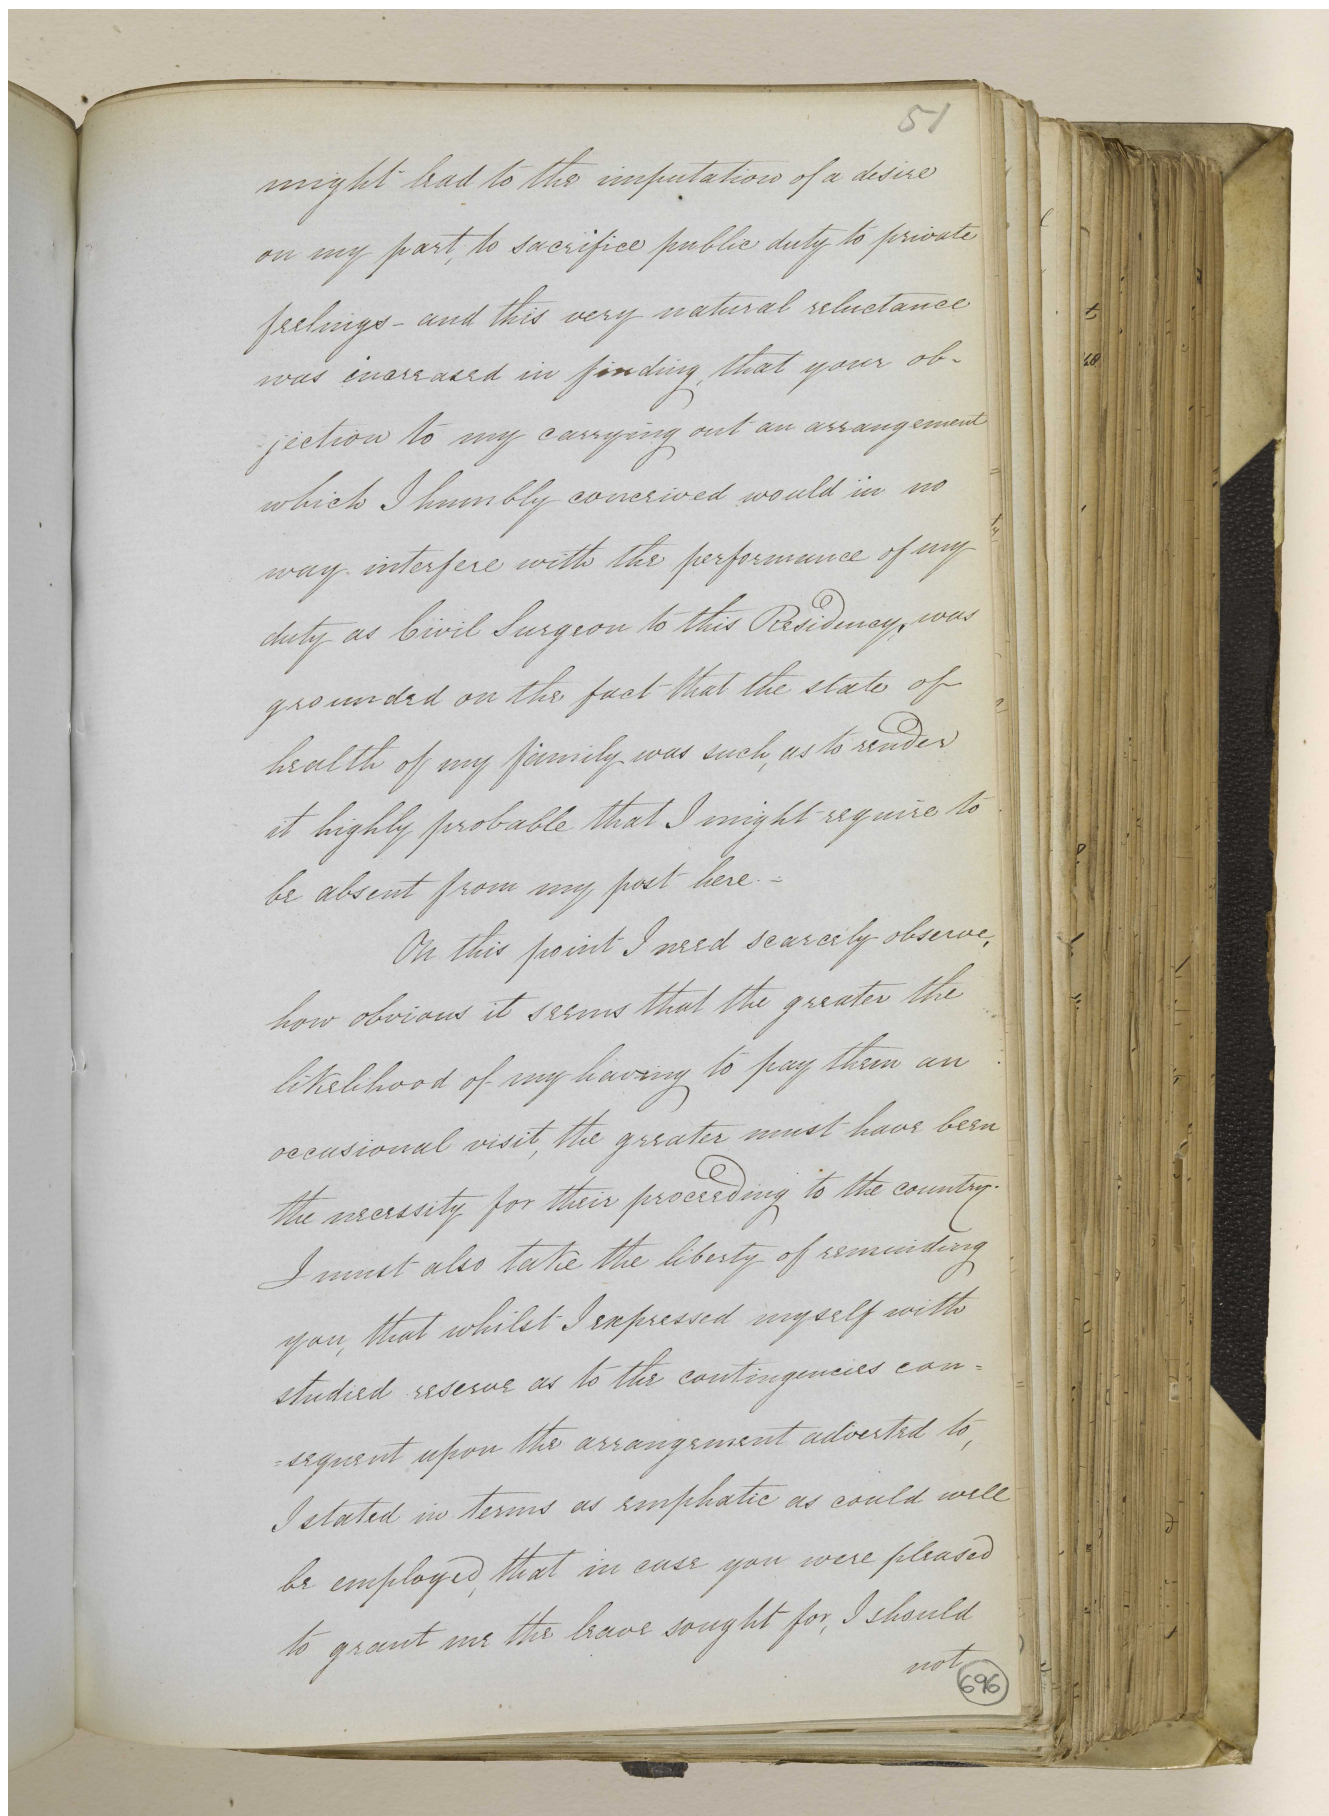 51
might lead to the imputation of a desire
on my part, to sacrifice public duty to private
feelings - and this very natural reluctance
was increased in finding, that your ob-
jection to my carrying out an arrangement
which I humbly conceived would in no
way interfere with the performance of my
duty as Civil Surgeon to this Residency, was
grounded on the fact that the state of
health of my family was such, as to render
it highly probable that I might require to
be absent from my post here. -
On this point I need scarcely observe,
how obvious it seems that the greater the
likelihood of my having to pay them an
occasional visit, the greater must have been
the necessity for their proceeding to the country.
I must also take the liberty of reminding
you, that whilst I expressed myself with
studied reserve as to the contingencies con=
=sequent upon the arrangement adverted to,
I stated in terms as emphatic as could well
be employed, that in case you were pleased
to grant me the leave sought for, I should
not
696